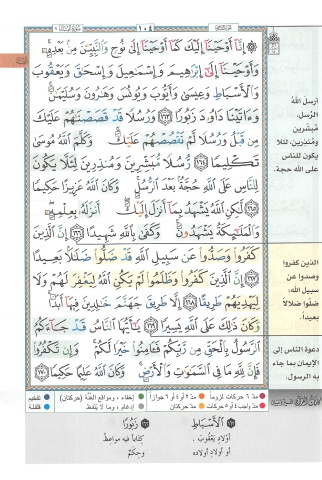 الجزء السادس ١٠٤ سورة النساء ٤
۞ إِنَّآ أَوْحَيْنَآ إِلَيْكَ كَمَآ أَوْحَيْنَآ إِلَىٰ نُوحٍ وَٱلنَّبِيِّـۧنَ مِنۢ بَعْدِهِۦ ۚ
وَأَوْحَيْنَآ إِلَىٰٓ إِبْرَٰهِيمَ وَإِسْمَـٰعِيلَ وَإِسْحَـٰقَ وَيَعْقُوبَ
وَٱلْأَسْبَاطِ وَعِيسَىٰ وَأَيُّوبَ وَيُونُسَ وَهَـٰرُونَ وَسُلَيْمَـٰنَ ۚ
وَءَاتَيْنَا دَاوُۥدَ زَبُورًا ١٦٣ وَرُسُلًا قَدْ قَصَصْنَـٰهُمْ عَلَيْكَ
مِن قَبْلُ وَرُسُلًا لَّمْ نَقْصُصْهُمْ عَلَيْكَ ۚ وَكَلَّمَ ٱللَّهُ مُوسَىٰ
تَكْلِيمًا ١٦٤ رُّسُلًا مُّبَشِّرِينَ وَمُنذِرِينَ لِئَلَّا يَكُونَ
لِلنَّاسِ عَلَى ٱللَّهِ حُجَّةٌۢ بَعْدَ ٱلرُّسُلِ ۚ وَكَانَ ٱللَّهُ عَزِيزًا حَكِيمًا
١٦٥ لَّـٰكِنِ ٱللَّهُ يَشْهَدُ بِمَآ أَنزَلَ إِلَيْكَ ۖ أَنزَلَهُۥ بِعِلْمِهِۦ ۖ
وَٱلْمَلَـٰٓئِكَةُ يَشْهَدُونَ ۚ وَكَفَىٰ بِٱللَّهِ شَهِيدًا ١٦٦ إِنَّ ٱلَّذِينَ
كَفَرُوا۟ وَصَدُّوا۟ عَن سَبِيلِ ٱللَّهِ قَدْ ضَلُّوا۟ ضَلَـٰلًۢا بَعِيدًا
١٦٧ إِنَّ ٱلَّذِينَ كَفَرُوا۟ وَظَلَمُوا۟ لَمْ يَكُنِ ٱللَّهُ لِيَغْفِرَ لَهُمْ وَلَا
لِيَهْدِيَهُمْ طَرِيقًا ١٦٨ إِلَّا طَرِيقَ جَهَنَّمَ خَـٰلِدِينَ فِيهَآ أَبَدًا ۚ
وَكَانَ ذَٰلِكَ عَلَى ٱللَّهِ يَسِيرًا ١٦٩ يَـٰٓأَيُّهَا ٱلنَّاسُ قَدْ جَآءَكُمُ
ٱلرَّسُولُ بِٱلْحَقِّ مِن رَّبِّكُمْ فَـَٔامِنُوا۟ خَيْرًا لَّكُمْ ۚ وَإِن تَكْفُرُوا۟
فَإِنَّ لِلَّهِ مَا فِى ٱلسَّمَـٰوَٰتِ وَٱلْأَرْضِ ۚ وَكَانَ ٱللَّهُ عَلِيمًا حَكِيمًا ١٧٠
أرسل اللهُ
الرُّسل،
مُبشِّرين
ومُنذرين، لئلا
يكون للناس
على الله حجة.
الذين كفروا
وصدوا عن
سبيل الله،
ضلّوا ضلالاً
بعيداً.
دعوة الناس إلى
الإيمان بما جاء
به الرسول.
مدّ ٦ حركات لزوماً مدّ ٢ أو ٤ أو ٦ جوازاً إخفاء ، ومواقع الغُنَّة (حركتان) تفخيم
مدّ واجب ٤ أو ٥ حركات مدّ حركتان إدغام ، وما لا يُلفَظ قلقلة
١٦٣ ٱلْأَسْبَاطِ ١٦٣ زَبُورًا
أولاد يَعْقُوبَ . كتاباً فيه مواعظُ
أو أولادِ أولادِه وحِكَمٌ